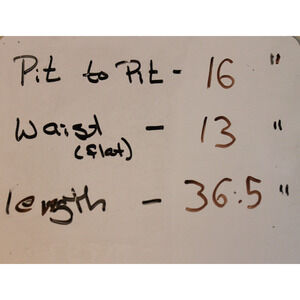 Pit to Pit - 16 "
Waist - 13 "
(flat)
length - 36.5 "